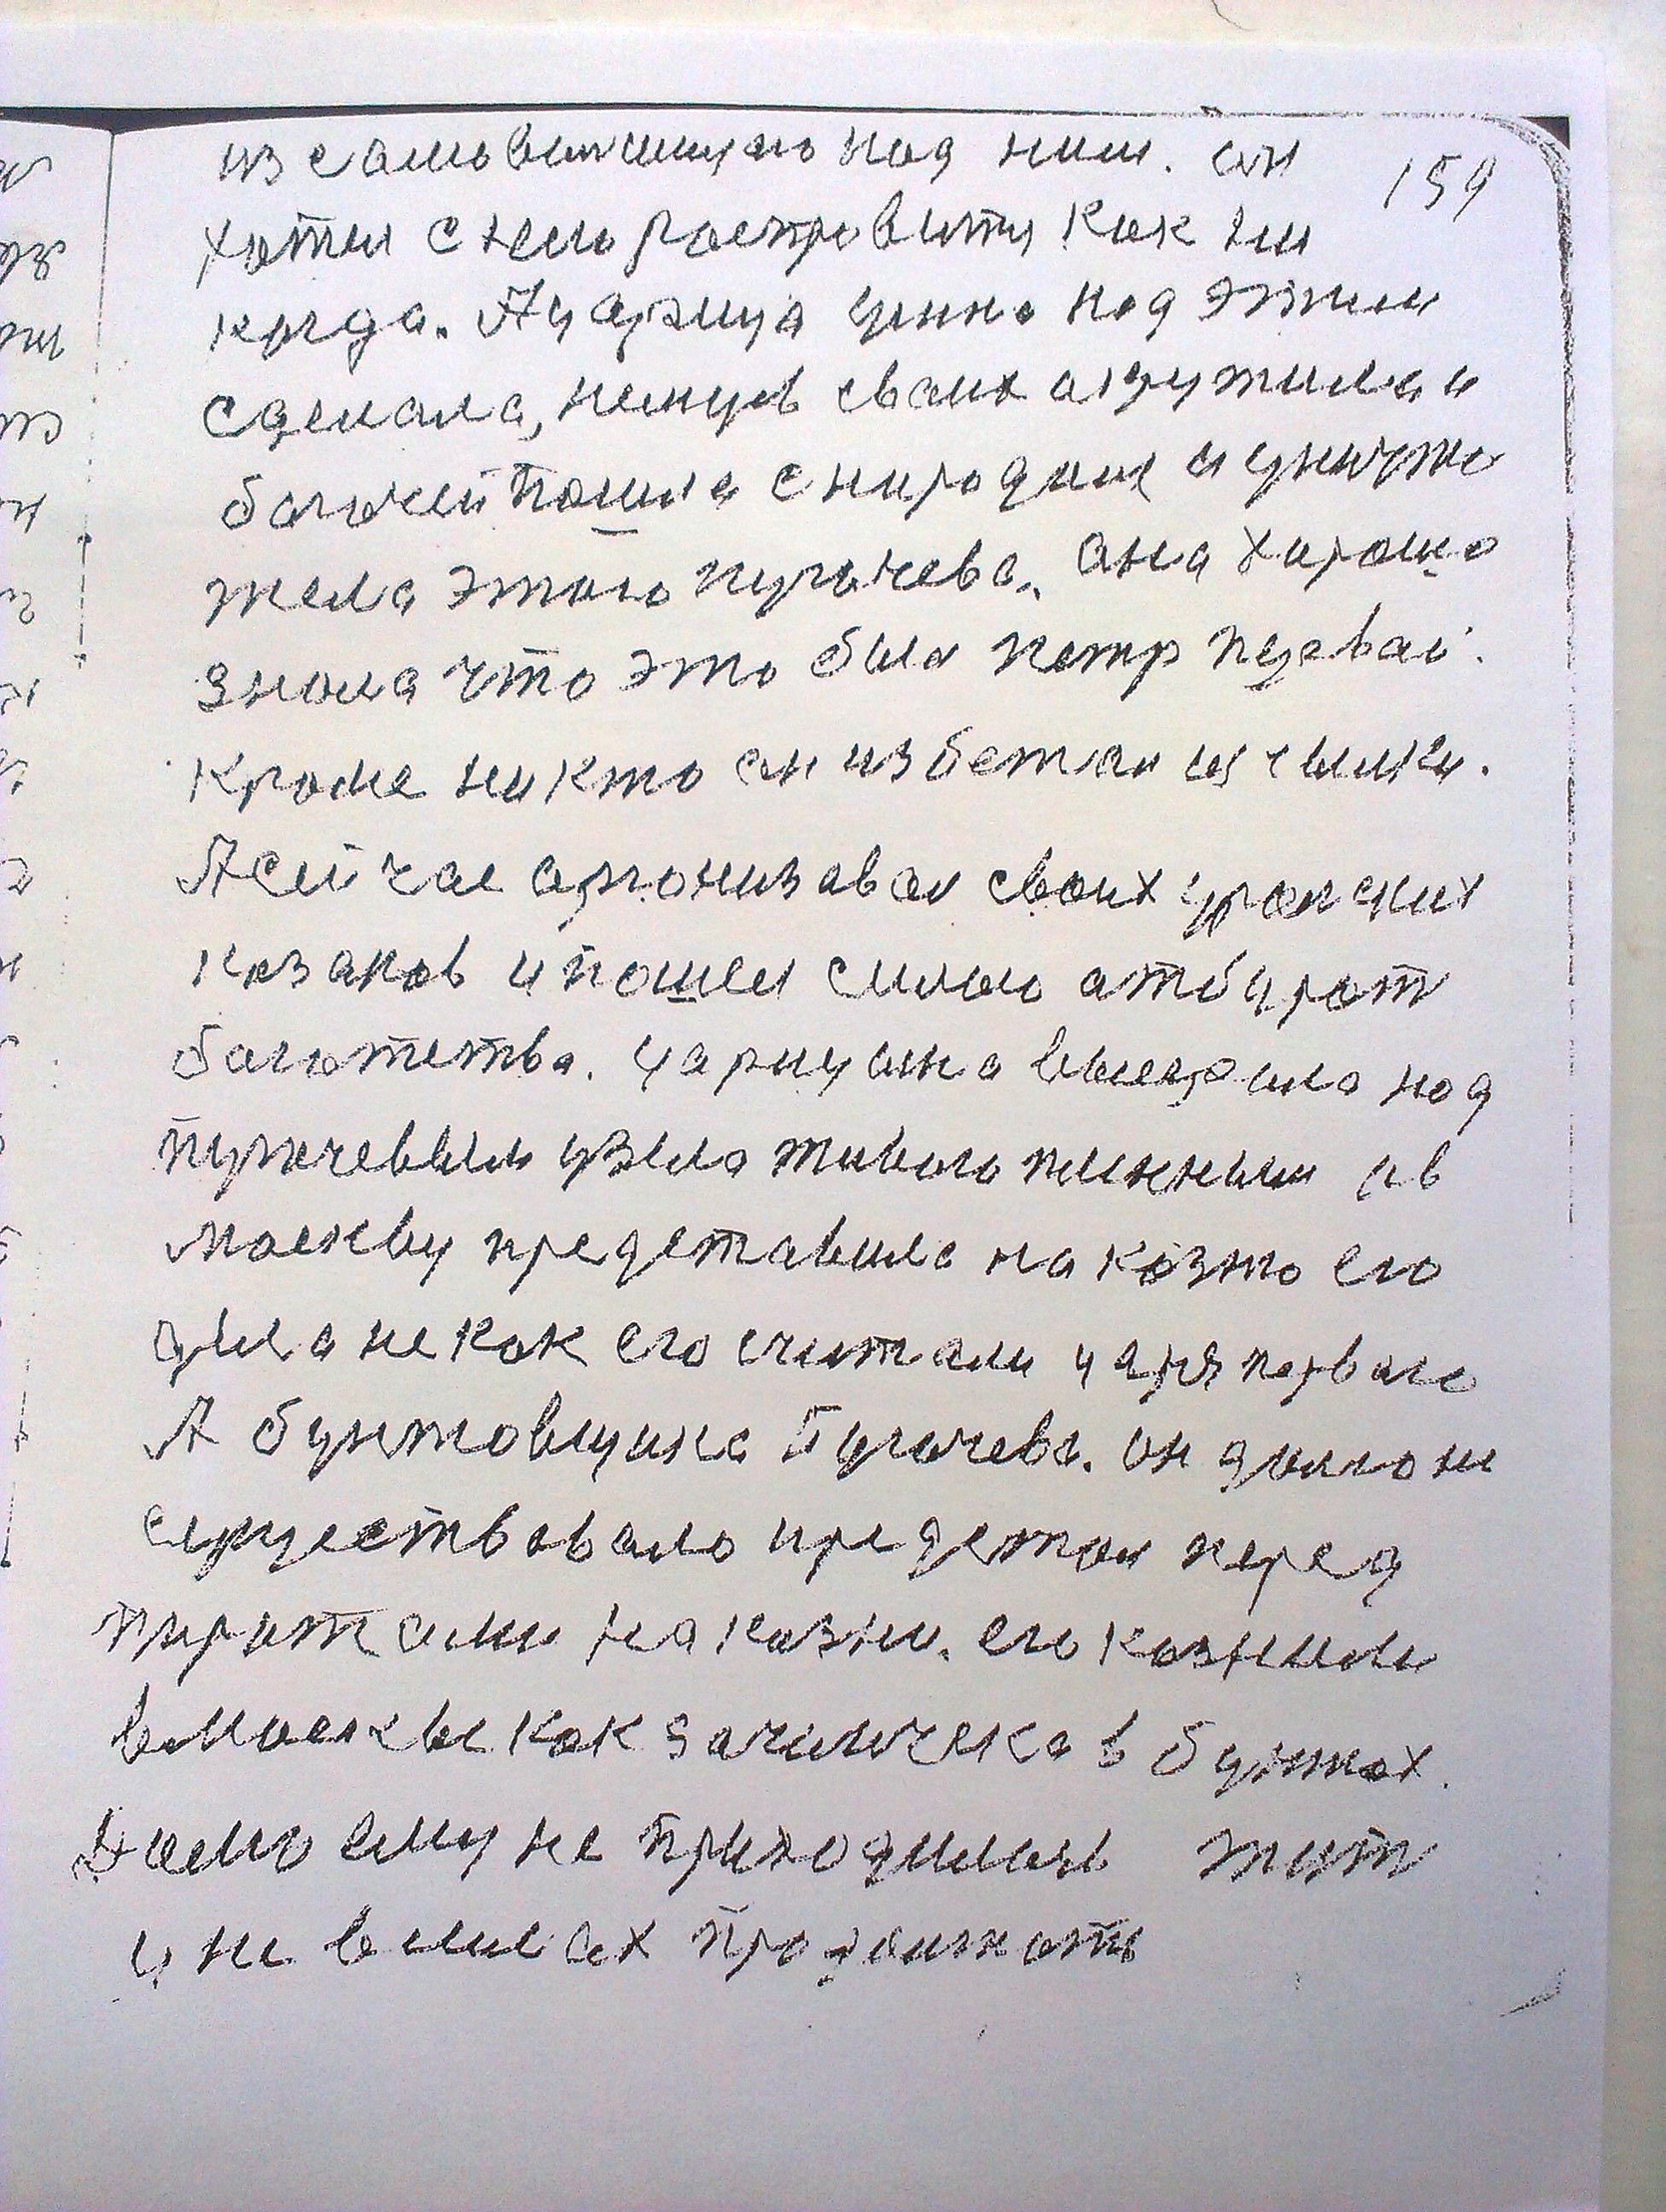 из само над ним. он 159
хотел с нею росправит как ни
когда. А царица умно над этим
сделала, немцев сваих
богачей пошла с народам и уничто
жела этого пугачева. она харошо
знала что это был петр первай.
кроме никто он избежал
А сейчас аргонизавал сваих уральских
казаков и пошел смело атбират
богатства. царица выседила над
пугачеввым узяла живого пленным ив
москву представила на казню его
дила не как его считали царя первого
А бунтовщика Пугачева. он долго не
существовало предстал перед
пиратсами на казни. его казнили
в москвы как зачинчека в бунтах.
долго ему не приходилась жит
и не в силах продолжать